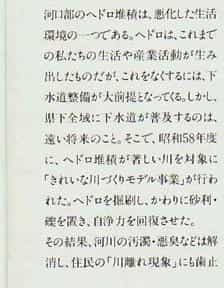 河口部のヘドロ堆積は、悪化した生活
環境の一つである。ヘドロは、これまで
の私たちの生活や産業活動が生み
出したものだが、これをなくするには、下
水道整備が大前提となってくる。しかし、
県下全域に下水道が普及するのは、
遠い将来のこと。そこで、昭和58年度
に、ヘドロ堆積が著しい川を対象に
「きれいな川づくりモデル事業」が行わ
れた。ヘドロを掘削し、かわりに砂利・
礫を置き、自浄力を回復させた。
その結果、河川の汚濁・悪臭などは解
消し、住民の「川離れ現象」にも歯止